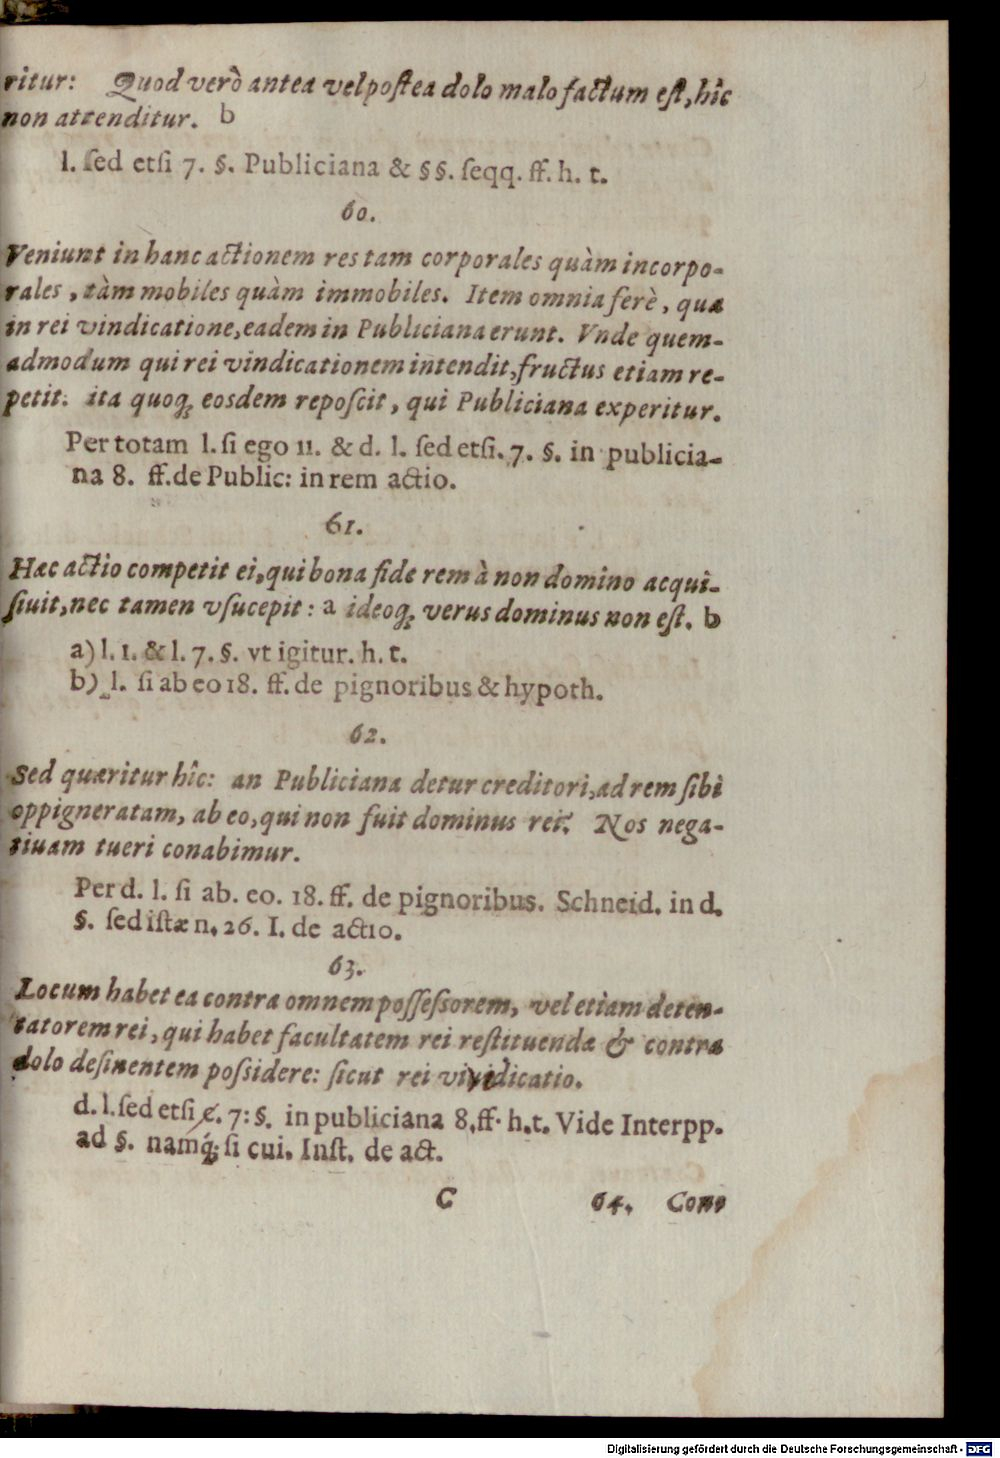 ritur: Quod verò antea vel postea dolo malo factum est, hîc
non attenditur. b
l. ſed etſi 7. §. Publiciana & §§. ſeqq. ff. h. t.
60.
Veniunt in hanc actionem res tam corporales quàm incorpo-
rales, tàm mobiles quàm immobiles. Item omnia ferè, quæ
in rei vindicatione, eadem in Publiciana erunt. Vnde quem-
admodum qui rei vindicationem intendit, fructus etiam re-
petit: ita quoq; eosdem repoſcit, qui Publiciana experitur.
Per totam l. ſi ego 11. & d. l. ſed etſi. 7. §. in publicia-
na 8. ff. de Public: in rem actio.
61.
Hæc actio competit ei, qui bona fide rem à non domino acqui-
ſiuit, nec tamen vſucepit: a ideoq; verus dominus non eſt. b
a) l. 1. & l. 7. §. vt igitur. h. t.
b) l. ſi ab eo 18. ff. de pignoribus & hypoth.
62.
Sed quæritur hîc: an Publiciana detur creditori, ad rem ſibi
oppigneratam, ab eo, qui non fuit dominus rei? Nos nega-
tiuam tueri conabimur.
Per d. l. ſi ab. eo. 18. ff. de pignoribus. Schneid. in d.
§. ſed iſtæ n. 26. I. de actio.
63.
Locum habet ea contra omnem poſſeſſorem, vel etiam deten-
tatorem rei, qui habet facultatem rei reſtituendæ & contra
dolo deſinentem poſsidere: ſicut rei vindicatio.
d. l. ſed etſi e. 7: §. in publiciana 8. ff. h. t. Vide Interpp.
ad §. namq; ſi cui. Inſt. de act.
C 64. Con-
Digitalisierung gefördert durch die Deutsche Forschungsgemeinschaft - DFG